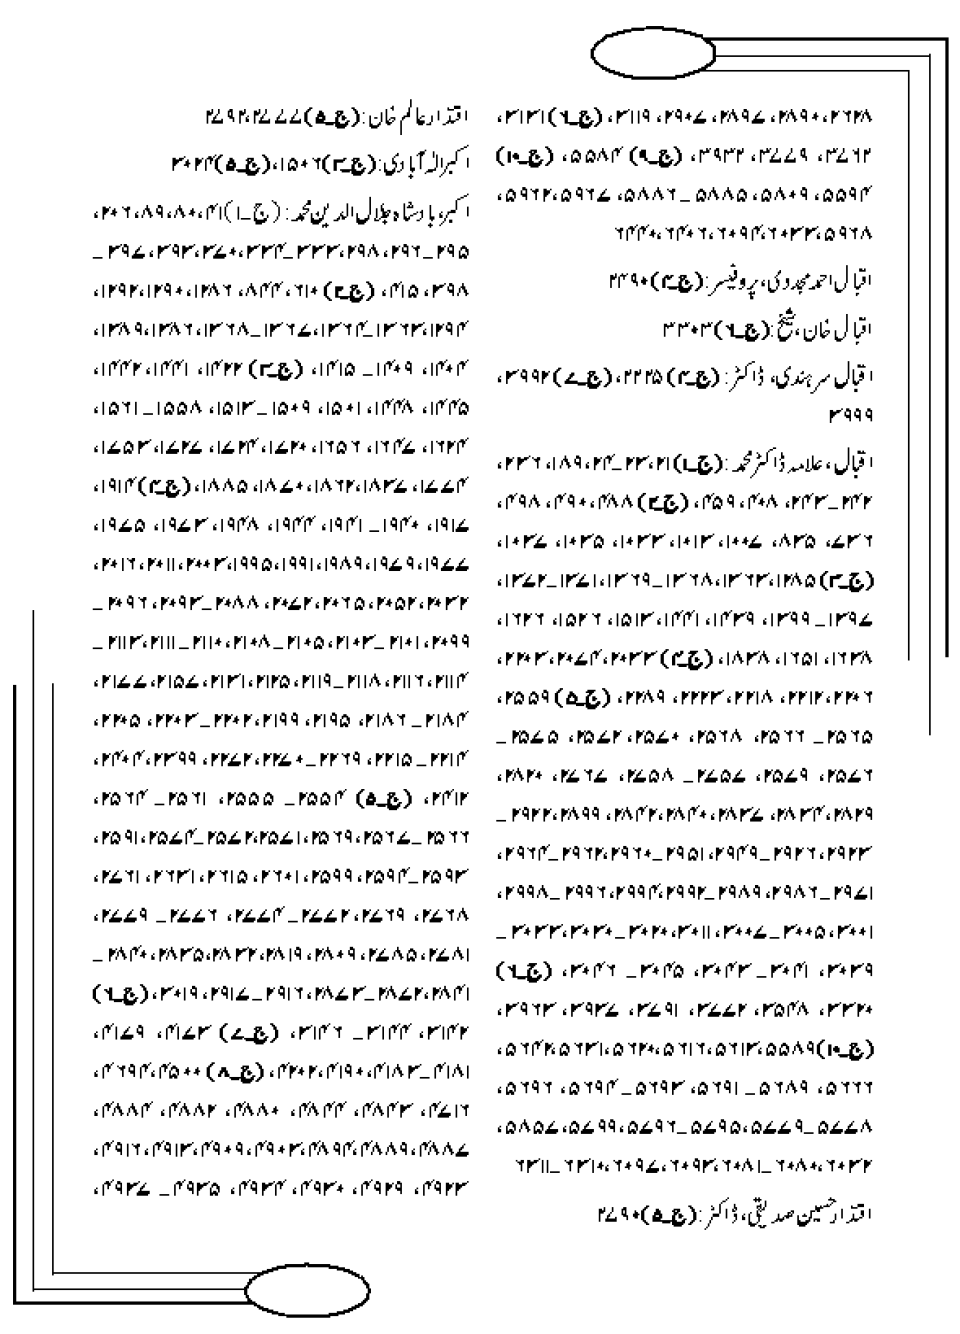 ۲۶۲۸،۲۸۹۰،۲۸۹۷،۲۹۰۷،۳۱۱۹،(ج_۶)۳۱۳۱،
۳۷۶۲، ۳۷۷۹، ۳۹۳۲، (ج_۹) ۵۵۸۴، (ج_۱۰)
۵۵۹۴، ۵۸۰۹، ۵۸۸۵_۵۸۸۶، ۵۹۶۷،۵۹۶۲،
۵۹۶۸،۶۰۳۳،۶۰۹۴،۶۰۶۴،۶۴۴۰
اقبال احمد مجددی، پروفیسر:(ج_۴)۲۴۹۰
اقبال خان، شیخ:(ج_۶)۳۳۰۳
اقبال سرہندی، ڈاکٹر:(ج_۴)۲۲۲۵،(ج_۷)۳۹۹۲،
۳۹۹۹
اقبال، علامہ ڈاکٹر محمد:(ج_۱)۲۱،۲۳_۲۴،۱۸۹،۲۳۶،
۲۴۲_۲۴۳، ۴۰۸، ۴۵۹،(ج_۲) ۴۸۸، ۴۹۰، ۴۹۸،
۶۳۷، ۸۳۵، ۱۰۰۷، ۱۰۱۳، ۱۰۲۳، ۱۰۳۵، ۱۰۳۷،
(ج_۳)۱۲۸۵،۱۳۶۳،۱۳۶۸_۱۳۶۹،۱۳۷۱_۱۳۷۲،
۱۳۹۷_۱۳۹۹، ۱۴۳۹، ۱۴۴۱، ۱۵۱۳، ۱۵۲۶، ۱۶۲۶،
۱۶۳۸، ۱۶۵۱، ۱۸۳۸،(ج_۴)۲۰۳۳،۲۰۷۴،۲۲۰۳،
۲۲۰۶،۲۲۱۲، ۲۲۱۸، ۲۲۲۳، ۲۲۸۹،(ج_۵) ۲۵۵۹،
۲۵۶۵_ ۲۵۶۶، ۲۵۶۸، ۲۵۷۰، ۲۵۷۲، ۲۵۷۵_
۲۵۷۶، ۲۵۷۹، ۲۷۵۶_ ۲۷۵۸، ۲۷۶۷، ۲۸۲۰،
۲۸۲۹،۲۸۳۴، ۲۸۳۷، ۲۸۴۰،۲۸۴۲، ۲۸۹۹،۲۹۲۲_
۲۹۲۳،۲۹۲۶_۲۹۴۹،۲۹۵۱_۲۹۶۰،۲۹۶۲_۲۹۶۴،
۲۹۷۱_۲۹۸۶، ۲۹۸۹_۲۹۹۲،۲۹۹۴، ۲۹۹۶_۲۹۹۸،
۳۰۰۱،۳۰۰۵_۳۰۰۷، ۳۰۱۱،۳۰۲۰_۳۰۳۰،۳۰۳۳_
۳۰۳۹، ۳۰۴۱_ ۳۰۴۳، ۳۰۴۵_ ۳۰۴۶، (ج_۶)
۳۳۲۰، ۳۵۴۸، ۳۷۷۲، ۳۷۹۱، ۳۹۳۷، ۳۹۶۳،
(ج_۱۰)۵۵۸۹،۵۶۱۳،۵۶۱۶،۵۶۲۰،۵۶۳۱،۵۶۴۲،
۵۶۶۶، ۵۶۸۹_ ۵۶۹۱، ۵۶۹۳_ ۵۶۹۴، ۵۶۹۶،
۵۷۷۸_۵۷۷۹، ۵۷۹۵_۵۷۹۶، ۵۷۹۹، ۵۸۵۷،
۶۰۳۲،۶۰۸۰_۶۰۸۱،۶۰۹۳،۶۰۹۷،۶۳۱۰_۶۳۱۱
اقتدار حسین صدیقی، ڈاکٹر:(ج_۵)۲۷۹۰
اقتدار عالم خان:(ج_۵)۲۷۷۷،۲۷۹۲
اکبر الٰہ آبادی:(ج_۳)۱۵۰۶،(ج_۵)۳۰۲۴
اکبر، بادشاہ جلال الدین محمد:(ج_۱)۴۱،۸۰،۸۹،۲۰۶،
۲۹۵_۲۹۶، ۲۹۸،۳۳۳_۳۳۴،۳۷۰،۳۹۳،۳۹۷_
۳۹۸، ۴۱۵، (ج_۲)۶۱۰، ۸۴۴، ۱۲۸۶،۱۲۹۰،۱۲۹۲،
۱۲۹۴،۱۳۶۳_۱۳۶۴، ۱۳۶۷_۱۳۶۸،۱۳۸۶،۱۳۸۹،
۱۴۰۴، ۱۴۰۹_ ۱۴۱۵، (ج_۳) ۱۴۲۲، ۱۴۴۱، ۱۴۴۲،
۱۴۴۵، ۱۴۴۸، ۱۵۰۱، ۱۵۰۹_۱۵۱۳، ۱۵۵۸_۱۵۶۱،
۱۶۲۴، ۱۶۴۷، ۱۶۵۶، ۱۷۲۰، ۱۷۲۴، ۱۷۲۷، ۱۷۵۳،
۱۷۷۴، ۱۸۳۷، ۱۸۶۲، ۱۸۷۰، ۱۸۸۵،(ج_۴) ۱۹۱۴،
۱۹۱۷، ۱۹۴۰_ ۱۹۴۱، ۱۹۴۴، ۱۹۴۸، ۱۹۷۳، ۱۹۷۵،
۱۹۷۷،۱۹۷۹،۱۹۸۹،۱۹۹۱،۱۹۹۵،۲۰۰۳،۲۰۱۱،۲۰۱۶،
۲۰۳۲،۲۰۵۲،۲۰۶۵،۲۰۷۲، ۲۰۸۸_۲۰۹۳، ۲۰۹۶_
۲۰۹۹،۲۱۰۱_۲۱۰۳،۲۱۰۵_۲۱۰۸،۲۱۱۰_۲۱۱۱،۲۱۱۳_
۲۱۱۴، ۲۱۱۶، ۲۱۱۸_۲۱۱۹، ۲۱۲۵، ۲۱۳۱، ۲۱۵۶، ۲۱۷۷،
۲۱۸۴_۲۱۸۶، ۲۱۹۵، ۲۱۹۹،۲۲۰۲_۲۲۰۳، ۲۲۰۵،
۲۲۱۴_۲۲۱۵، ۲۲۶۹_۲۲۷۰،۲۲۷۲، ۲۳۹۹،۲۴۰۴،
۲۴۱۲، (ج_۵) ۲۵۵۴_ ۲۵۵۵، ۲۵۶۱_ ۲۵۶۴،
۲۵۶۶_۲۵۶۷،۲۵۶۹،۲۵۷۱،۲۵۷۲_۲۵۷۴،۲۵۹۱،
۲۵۹۳_۲۵۹۴، ۲۵۹۹، ۲۶۰۱، ۲۶۱۵، ۲۶۳۱، ۲۶۷۱،
۲۷۶۸، ۲۷۶۹، ۲۷۷۲_۲۷۷۴، ۲۷۷۶_ ۲۷۷۹،
۲۷۸۱،۲۷۸۵،۲۸۰۹،۲۸۱۹،۲۸۳۲،۲۸۳۵،۲۸۴۰_
۲۸۴۱،۲۸۷۲_۲۸۷۳،۲۹۱۶_۲۹۱۷، ۳۰۱۹،(ج_۶)
۳۱۴۲، ۳۱۴۴_ ۳۱۴۶، (ج_۷) ۴۱۷۳، ۴۱۷۹،
۴۱۸۱_۴۱۸۳،۴۱۹۰،۴۲۰۲،(ج_۸)۴۵۰۰،۴۶۹۴،
۴۷۱۶، ۴۸۴۳، ۴۸۴۴، ۴۸۸۰، ۴۸۸۲، ۴۸۸۴،
۴۸۸۷،۴۸۸۹،۴۸۹۴،۴۹۰۳،۴۹۰۹،۴۹۱۳،۴۹۱۶،
۴۹۲۳، ۴۹۲۹، ۴۹۳۰، ۴۹۳۴، ۴۹۳۵_ ۴۹۳۷،